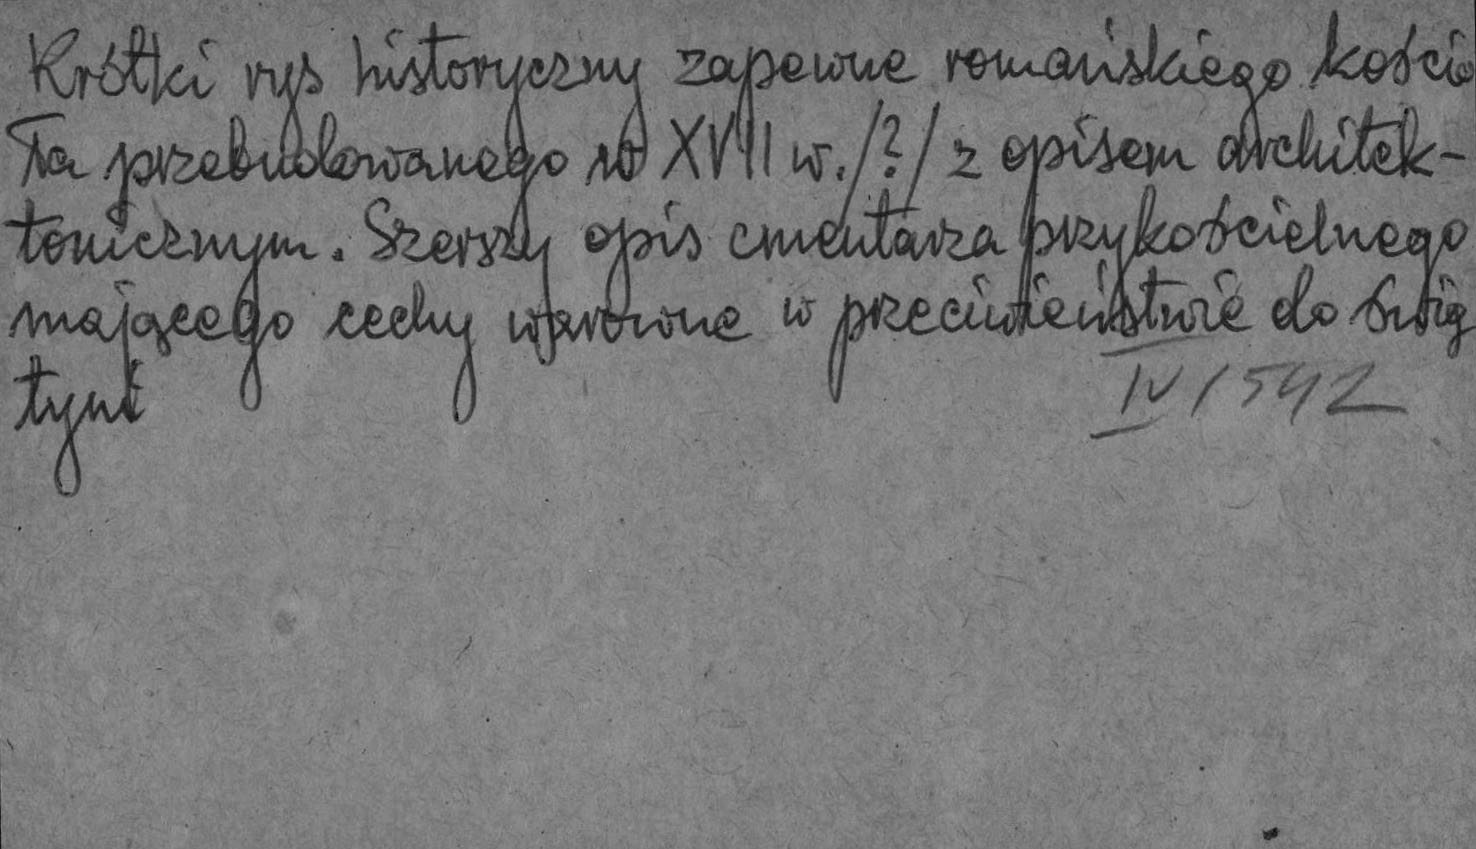 Krótki rys historyczny zapewne romańskiego kościo
ła przebudowanego w XVII w. /?/ z opisem architek-
tonicznym. Szerszy opis cmentarza przykościelnego
mającego cechy warowne w przeciwieństwie do świą
tyni
IV/542